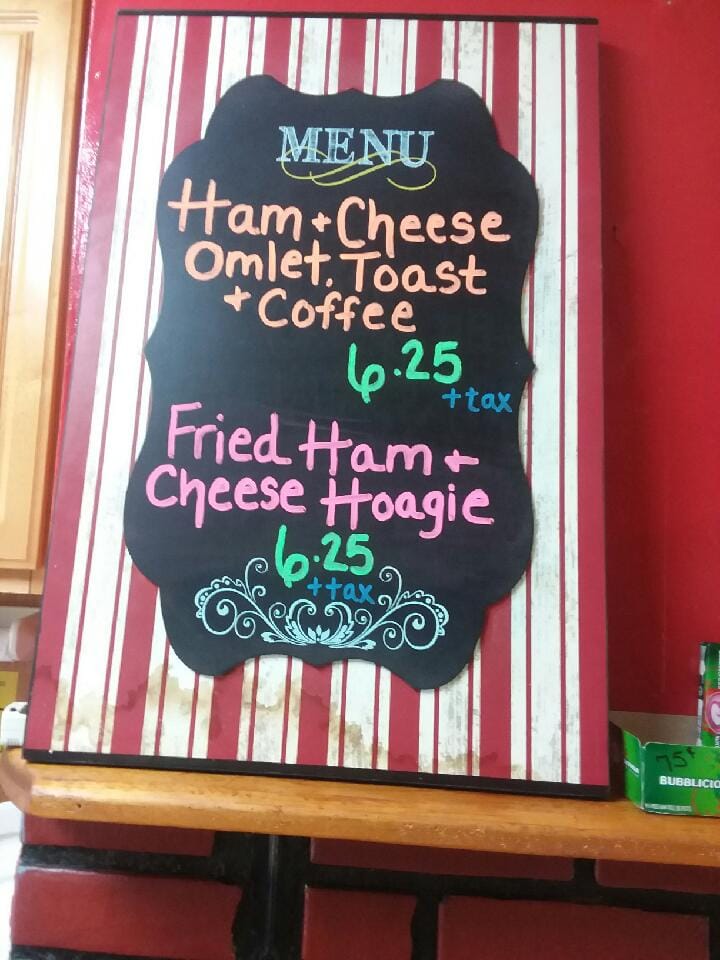 MENU
Ham + Cheese
Omlet, Toast
+ Coffee
6.25
+ tax
Fried Ham +
Cheese Hoagie
6.25
+ tax
75¢